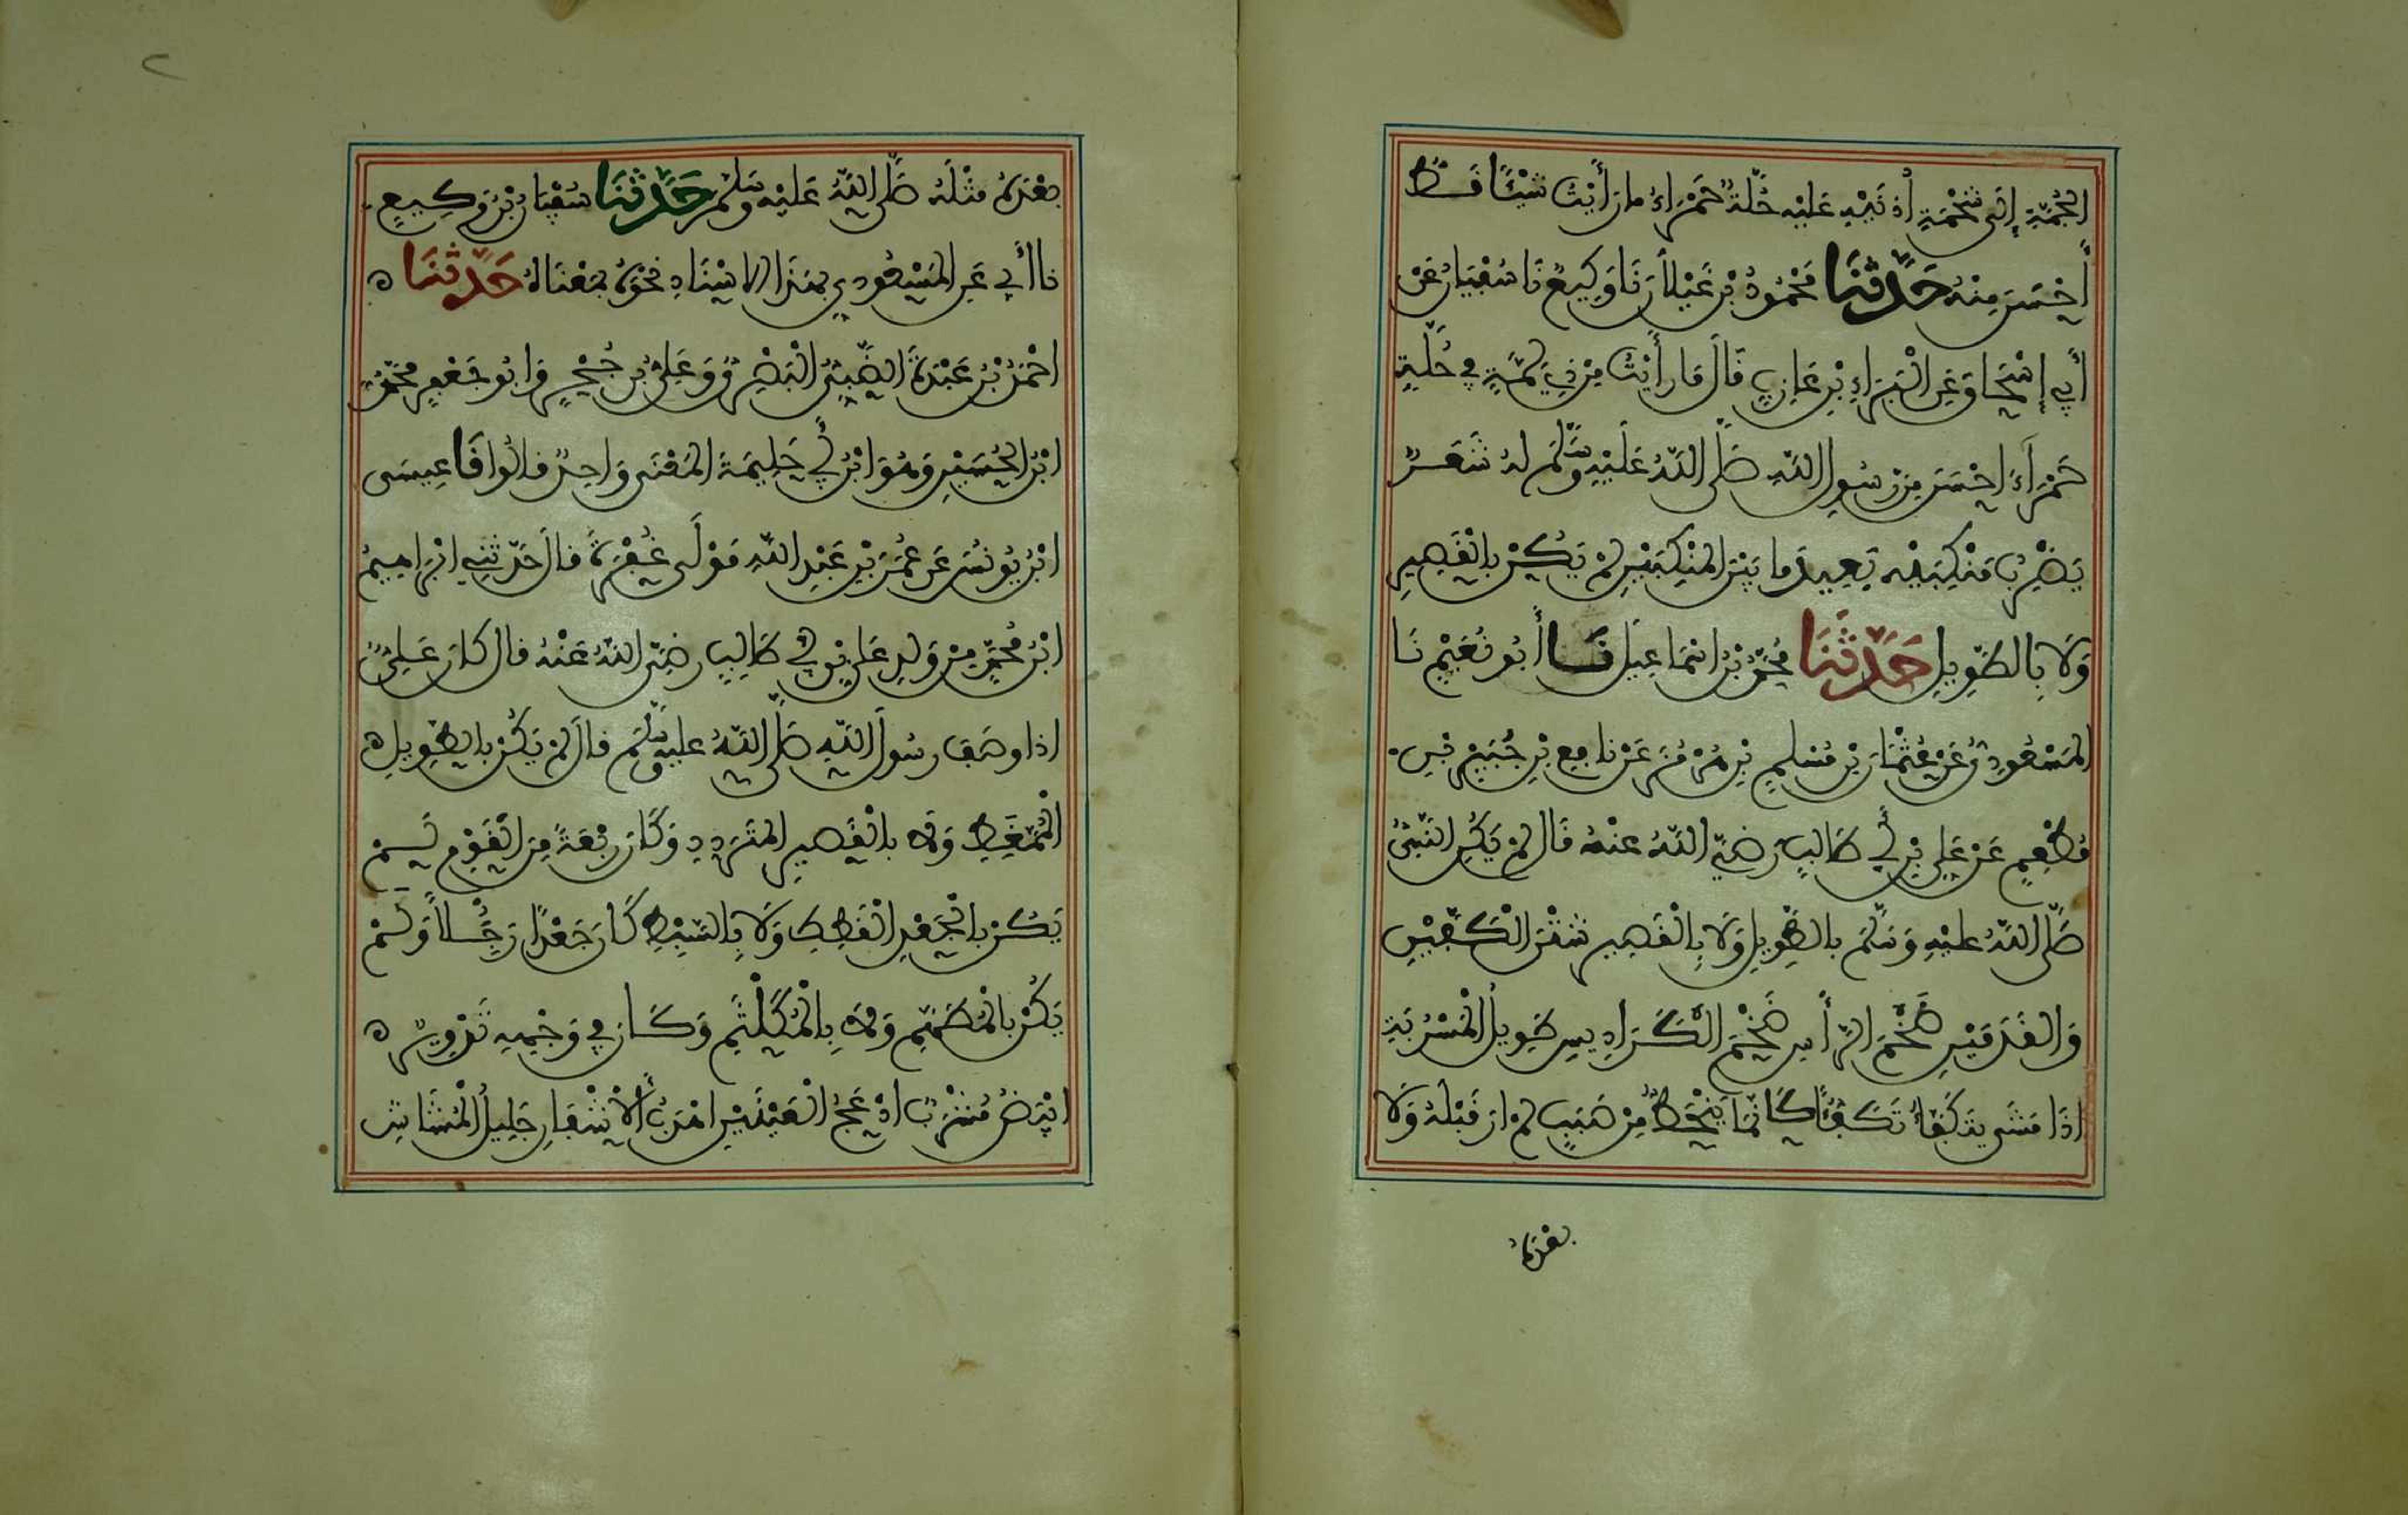 الجُمَّةِ إِلَى شَحْمَةِ أُذُنَيْهِ عَلَيْهِ حُلَّةٌ حَمْرَاءُ مَا رَأَيْتُ شَيْئًا قَطُّ
أَحْسَنَ مِنْهُ حَدَّثَنَا مَحْمُودُ بْنُ غَيْلَانَ نَا وَكِيعٌ نَا سُفْيَانُ عَنْ
أَبِي إِسْحَاقَ عَنِ الْبَرَاءِ بْنِ عَازِبٍ قَالَ مَا رَأَيْتُ مِنْ ذِي لِمَّةٍ فِي حُلَّةٍ
حَمْرَاءَ احْسَنَ مِنْ رَسُولِ اللَّهِ صَلَّى اللَّهُ عَلَيْهِ وَسَلَّمَ لَهُ شَعَرٌ
يَضْرِبُ مَنْكِبَيْهِ بَعِيدَ مَا بَيْنَ الْمَنْكِبَيْنِ لَمْ يَكُنْ بِالْقَصِيرِ
وَلَا بِالطَّوِيلِ حَدَّثَنَا مُحَمَّدُ بْنُ اسْمَاعِيلَ نَا أَبُو نُعَيْمٍ نَا
الْمَسْعُودِيُّ عَنْ عُثْمَانَ بْنِ مُسْلِمِ بْنِ هُرْمُزَ عَنْ نَافِعِ بْنِ جُبَيْرِ بْنِ
مُطْعِمٍ عَنْ عَلِيِّ بْنِ أَبِي طَالِبٍ رَضِيَ اللَّهُ عَنْهُ قَالَ لَمْ يَكُنِ النَّبِيُّ
صَلَّى اللَّهُ عَلَيْهِ وَسَلَّمَ بِالطَّوِيلِ وَلَا بِالْقَصِيرِ شَثْنَ الْكَفَّيْنِ
وَالْقَدَمَيْنِ ضَخْمَ الرَّأْسِ ضَخْمَ الْكَرَادِيسِ طَوِيلَ الْمَسْرُبَةِ
اذَا مَشَى تَكَفَّأَ تَكَفُّؤًا كَأَنَّمَا يَنْحَطُّ مِنْ صَبَبٍ لَمْ ارَ قَبْلَهُ وَلَا
بَعْدَهُ
٢
بَعْدَهُ مِثْلَهُ صَلَّى اللَّهُ عَلَيْهِ وَسَلَّمَ حَدَّثَنَا سُفْيَانُ بْنُ وَكِيعٍ
نا أَبِي عَنِ الْمَسْعُودِي بِهَذَا الْاسْنَادِ نَحْوَهُ بِمَعْنَاهُ حَدَّثَنَا
احْمَدُ بْنُ عَبْدَةَ الضَّبِّيُّ الْبَصْرِيُّ وَعَلِيُّ بْنُ حُجْرٍ وَابُو جَعْفَرٍ مُحَمَّدُ
ابْنُ الْحُسَيْنِ وَهُوَ ابْنُ أَبِي حَلِيمَةَ الْمَعْنَى وَاحِدٌ قَالُوا نَا عِيسَى
ابْنُ يُونُسَ عَنْ عُمَرَ بْنِ عَبْدِ اللَّهِ مَوْلَى غُفْرَةَ قَالَ حَدَّثَنِي ابْرَاهِيمُ
ابْنُ مُحَمَّدٍ مِنْ وَلَدِ عَلِيِّ بْنِ أَبِي طَالِبٍ رَضِيَ اللَّهُ عَنْهُ قَالَ كَانَ عَلِيٌّ
اذا وَصَفَ رَسُولَ اللَّهِ صَلَّى اللَّهُ عَلَيْهِ وَسَلَّمَ قَالَ لَمْ يَكُنْ بِالطَّوِيلِ
الْمُمَّغِطِ وَلَا بِالْقَصِيرِ الْمُتَرَدِّدِ وَكَانَ رَبْعَةً مِنَ الْقَوْمِ لَمْ
يَكُنْ بِالْجَعْدِ الْقَطِطِ وَلَا بِالسَّبْطِ كَانَ جَعْدًا رَجِلًا وَلَمْ
يَكُنْ بِالْمُطَهَّمِ وَلَا بِالْمُكَلْثَمِ وَكَانَ فِي وَجْهِهِ تَدْوِيرٌ
ابْيَضُ مُشْرَبٌ ادْعَجُ الْعَيْنَيْنِ اهْدَبُ الْأَشْفَارِ جَلِيلُ الْمُشَاشِ